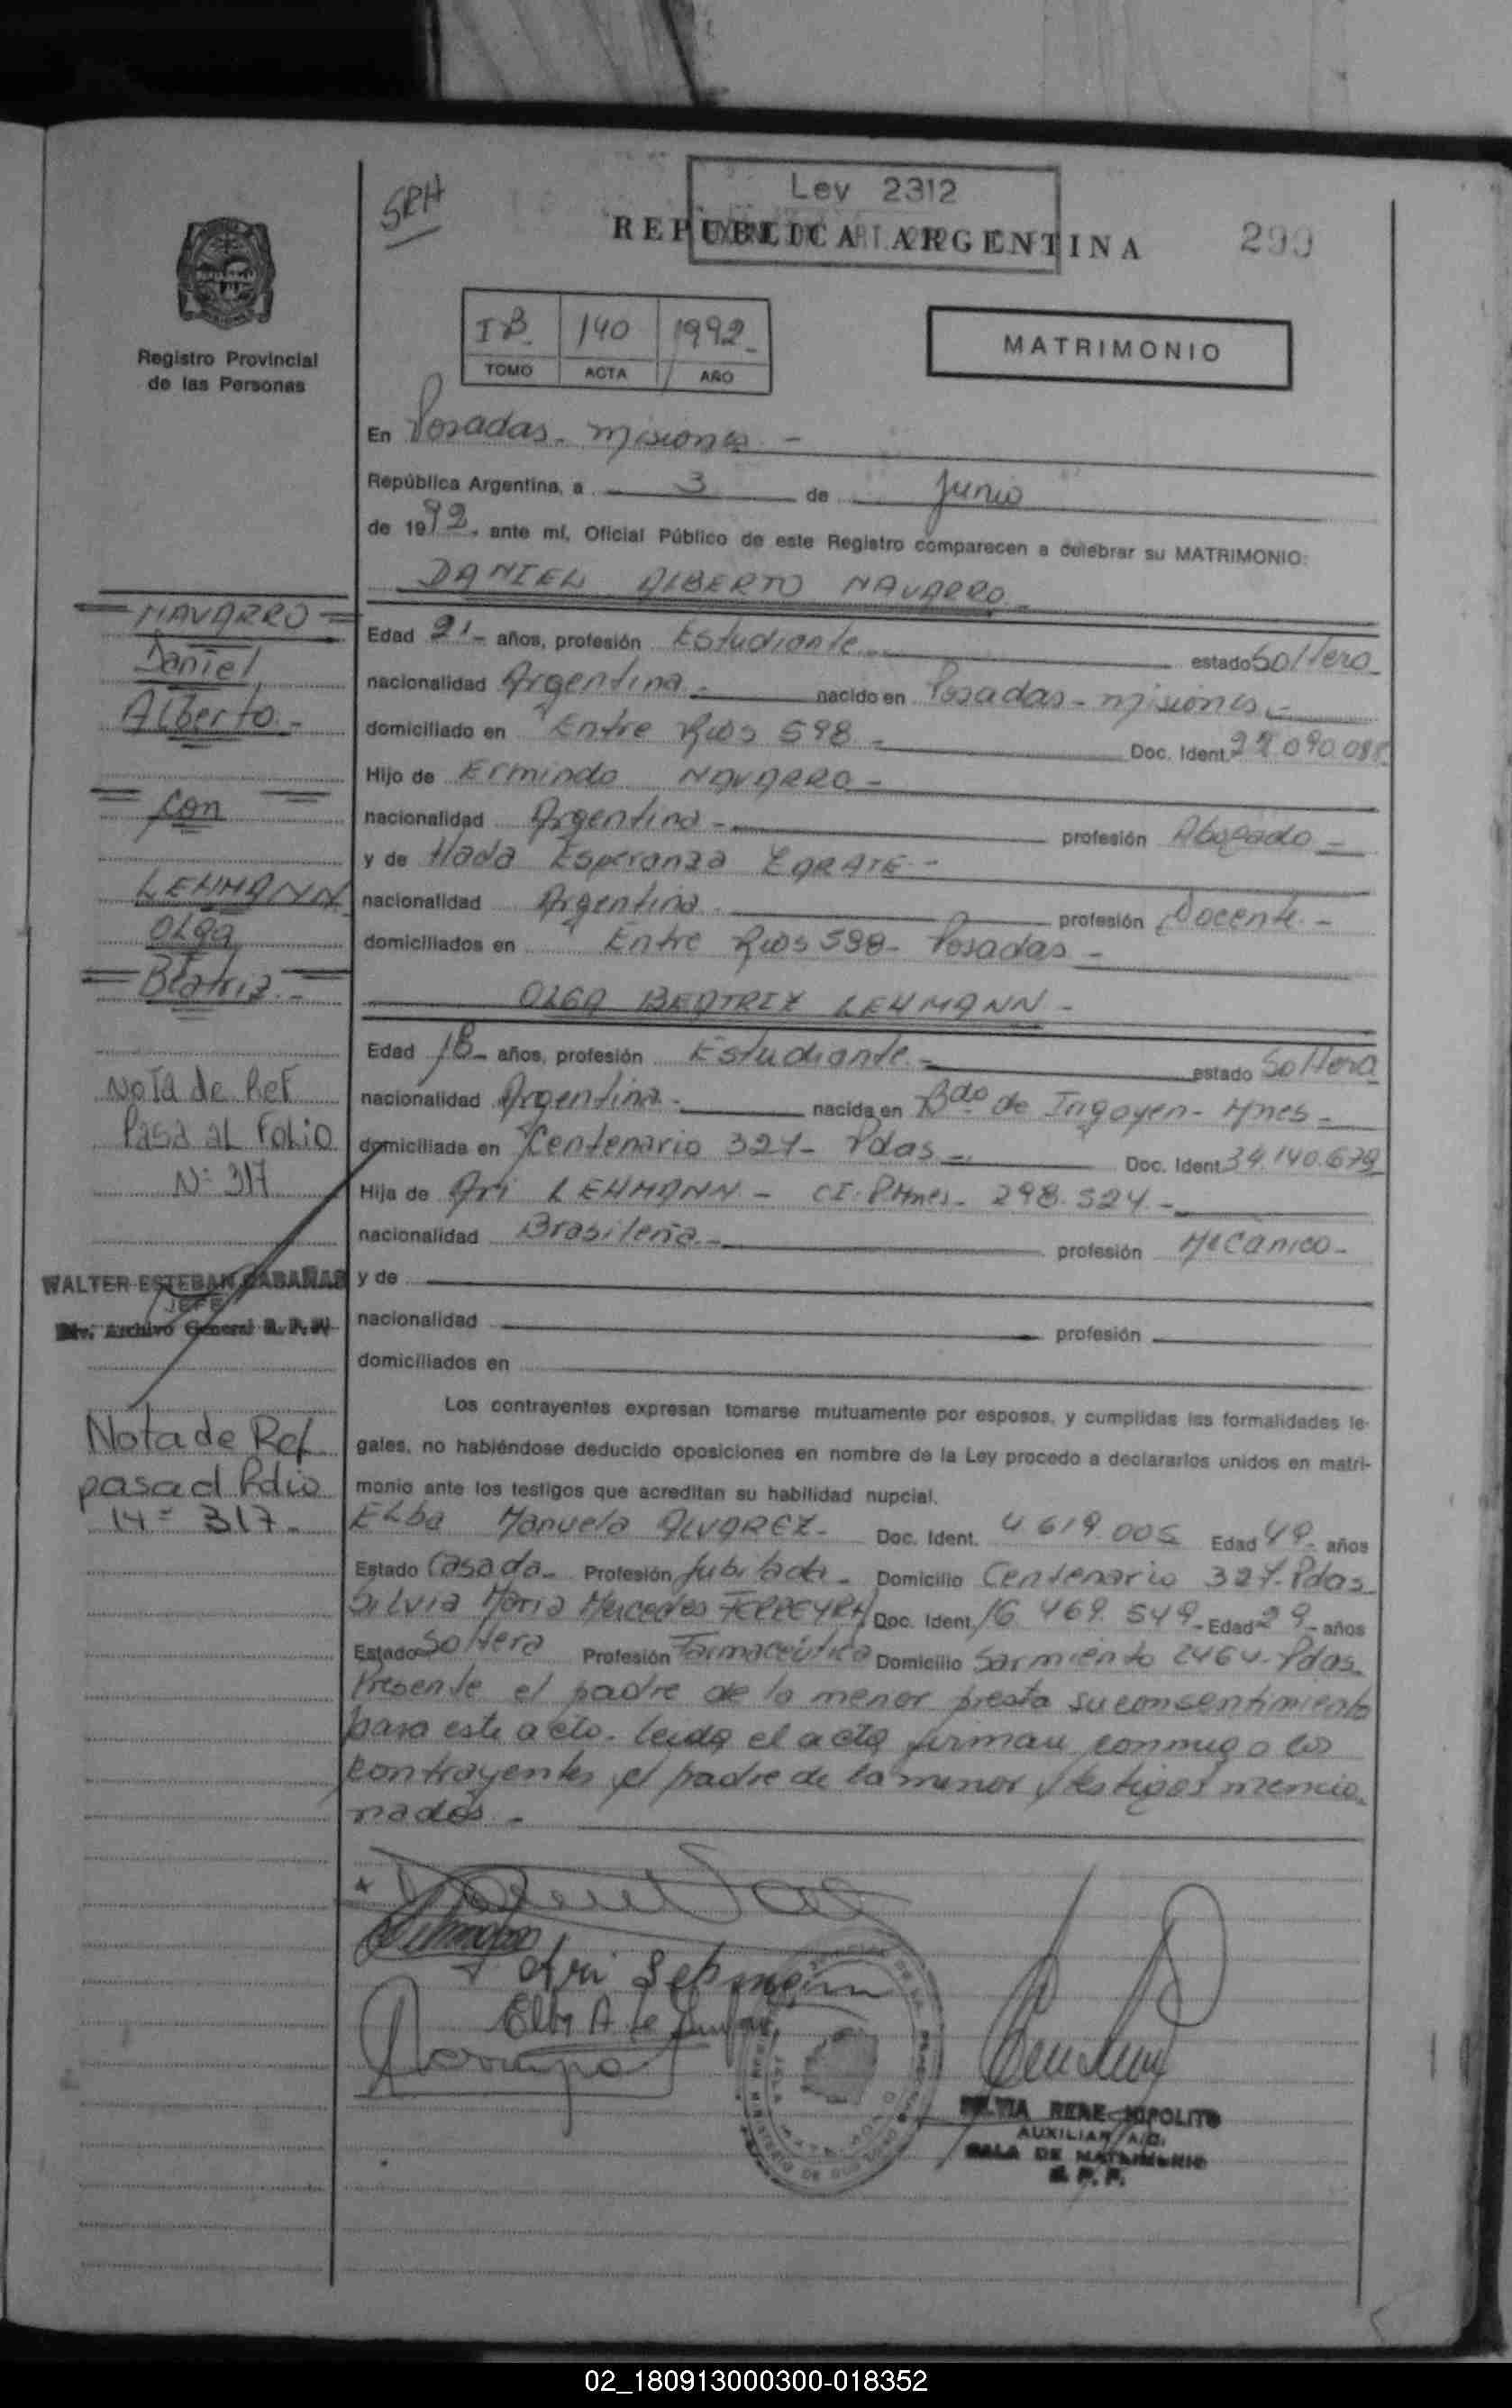 SRH
Ley 2312
REPUBLICA ARGENTINA
299
Registro Provincial
de las Personas
IB. 140 1992
TOMO ACTA AÑO
MATRIMONIO
En Posadas - Misiones -
República Argentina, a 3 de Junio
de 1992. ante mí, Oficial Público de este Registro comparecen a celebrar su MATRIMONIO:
DANIEL ALBERTO NAVARRO -
Edad 21 - años, profesión Estudiante - estado Soltero
nacionalidad Argentina - nacido en Posadas - Misiones -
domiciliado en Entre Rios 598 - Doc. Ident. 22.090.088
Hijo de Ermindo NAVARRO -
nacionalidad Argentina - profesión Abogado -
y de Hada Esperanza ZARATE -
nacionalidad Argentina profesión Docente -
domiciliados en Entre Rios 598 - Posadas -
OLGA BEATRIZ LEHMANN -
Edad 18 - años, profesión Estudiante - estado Soltera
nacionalidad Argentina - nacida en Bdo de Irigoyen - Mnes -
domiciliada en Centenario 327 - Pdas - Doc. Ident. 34.140.679
Hija de Ari LEHMANN - CI. P.Mnes - 298.524 -
nacionalidad Brasileña - profesión Mecanico -
y de
nacionalidad profesión
domiciliados en
Los contrayentes expresan tomarse mutuamente por esposos, y cumplidas las formalidades le-
gales, no habiéndose deducido oposiciones en nombre de la Ley procedo a declararlos unidos en matri-
monio ante los testigos que acreditan su habilidad nupcial.
Elba Manuela ALVAREZ - Doc. Ident. 4.619.005 Edad 49 - años
Estado Casada - Profesión Jubilada - Domicilio Centenario 327 - Pdas -
Silvia Maria Mercedes FERREYRA Doc. Ident. 16.469.549 - Edad 29 - años
Estado Soltera Profesión Farmaceútica Domicilio Sarmiento 2464 - Pdas -
Presente el padre de la menor presta su consentimiento
para este acto. leida el acta firman conmigo los
contrayentes, el padre de la menor y testigos mencio-
nados -
NAVARRO
Daniel
Alberto -
con
LEHMANN
Olga
Beatriz -
Nota de Ref
Pasa al Folio
N° 317
WALTER ESTEBAN CABAÑAS
JEFE
Div. Archivo General R. P. P.
Nota de Ref
pasa al Folio
N° 317 -
Ari Lehmann
SILVIA RENE HIPOLITO
AUXILIAR A/C.
SALA DE MATRIMONIO
R. P. P.
02_180913000300-018352